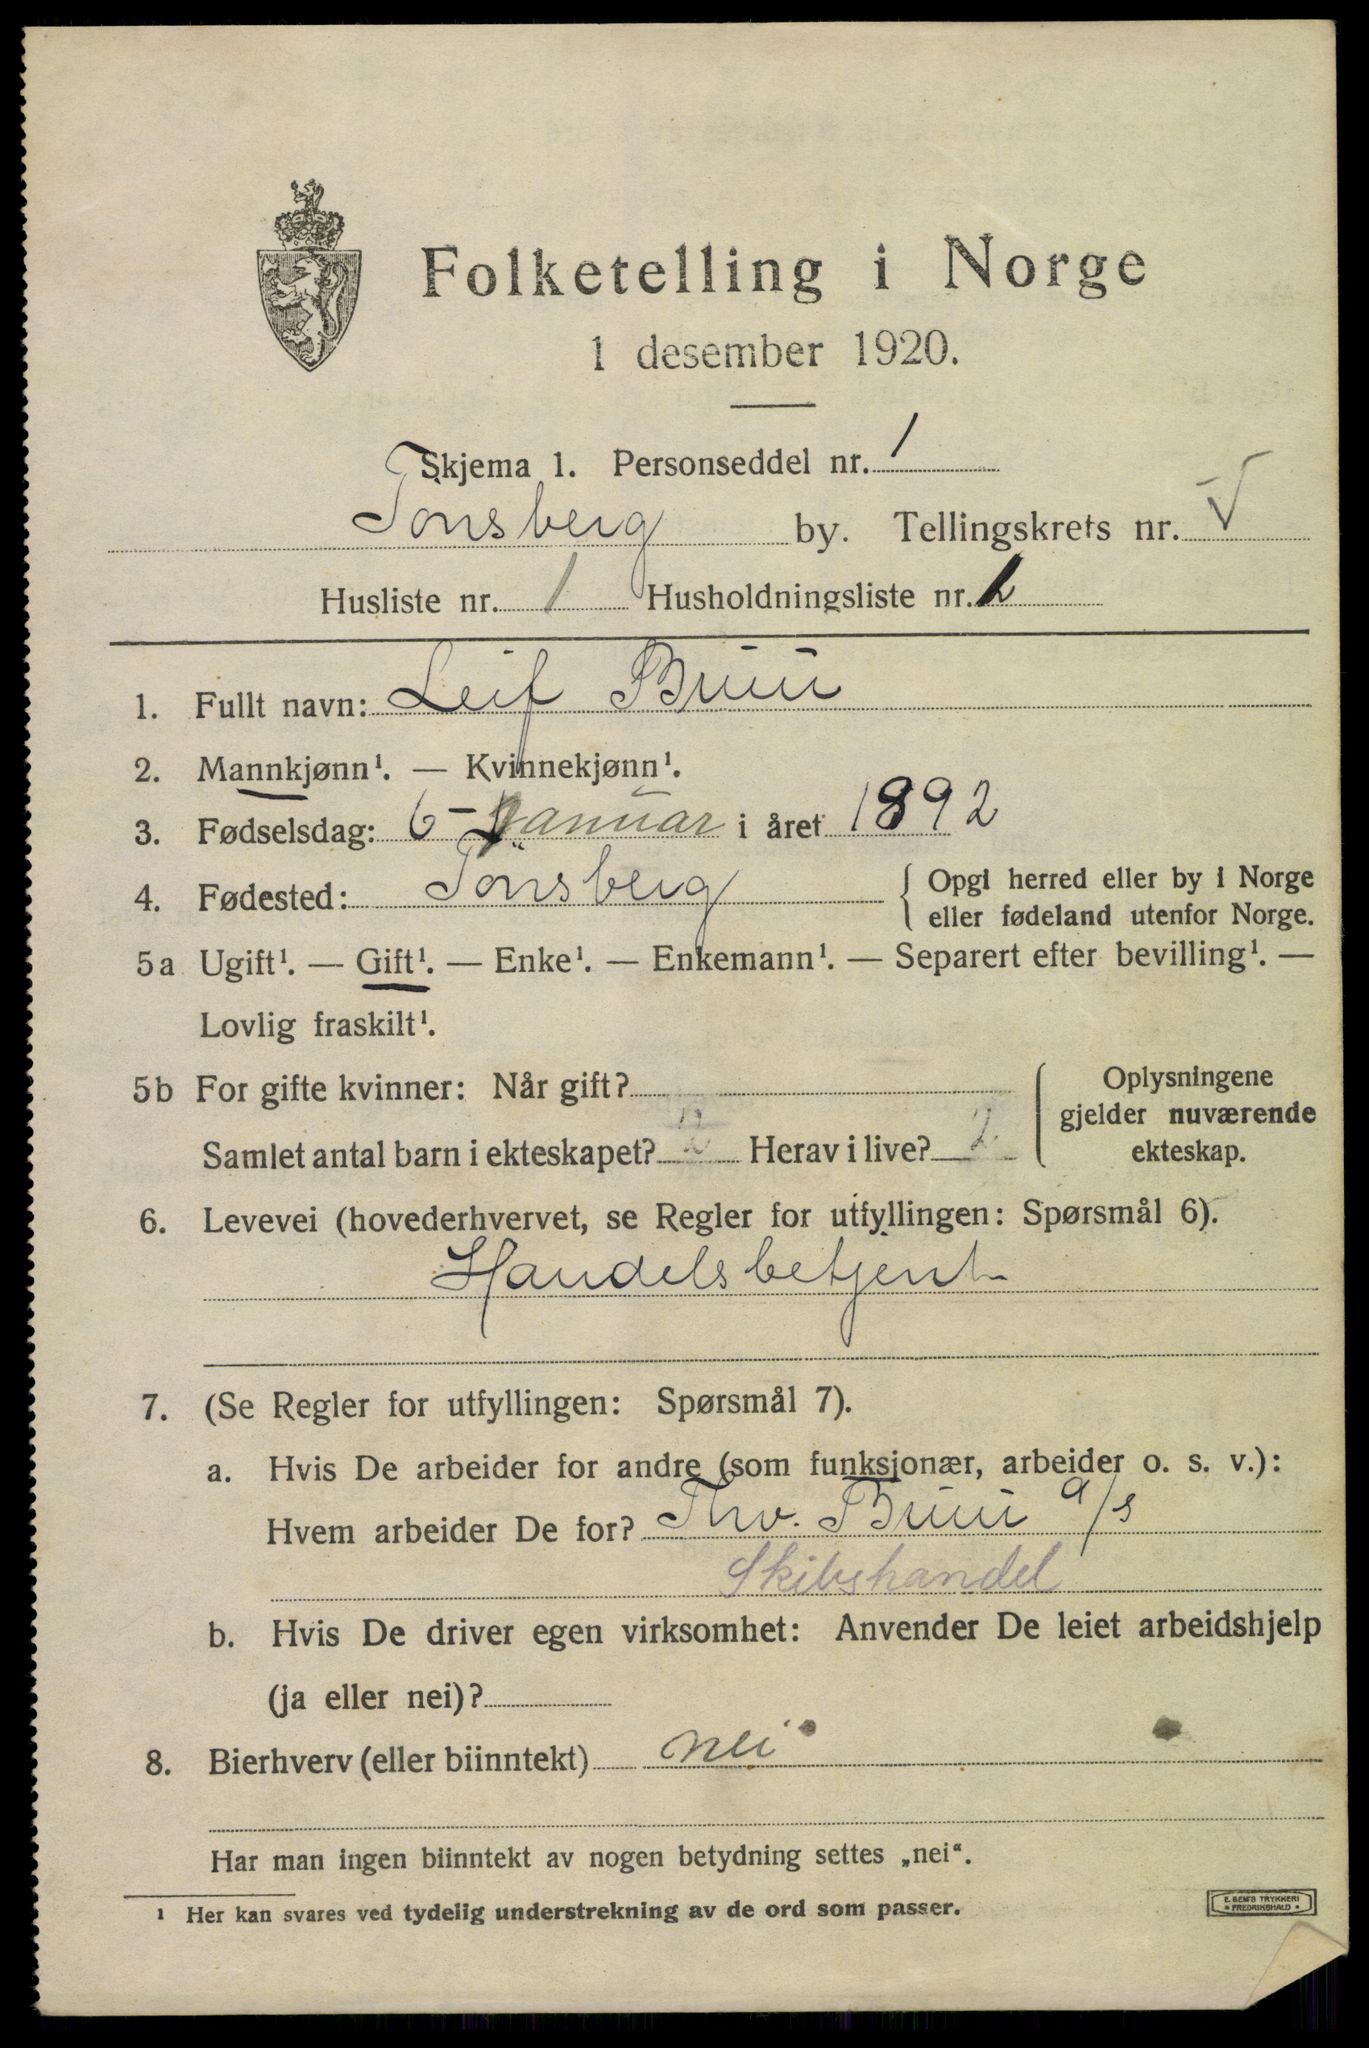 Folketelling i Norge
1 desember 1920.
Skjema 1. Personseddel nr. 1
Tønsberg by. Tellingskrets nr. V
Husliste nr. 1 Husholdningsliste nr. 2
1. Fullt navn: Leif Bruu
2. Mannkjønn¹. — Kvinnekjønn¹.
3. Fødselsdag: 6 - Januar i året 1892
4. Fødested: Tönsberg { Opgi herred eller by i Norge
eller fødeland utenfor Norge.
5a Ugift¹. — Gift¹. — Enke¹. — Enkemann¹. — Separert efter bevilling¹. —
Lovlig fraskilt¹.
5b For gifte kvinner: Når gift?
Samlet antal barn i ekteskapet? 2 Herav i live? 2
{ Oplysningene
gjelder nuværende
ekteskap.
6. Levevei (hovederhvervet, se Regler for utfyllingen: Spørsmål 6).
Handelsbetjent
7. (Se Regler for utfyllingen: Spørsmål 7).
a. Hvis De arbeider for andre (som funksjonær, arbeider o. s. v.):
Hvem arbeider De for? Thv. Bruu a/s
Skibshandel
b. Hvis De driver egen virksomhet: Anvender De leiet arbeidshjelp
(ja eller nei)?
8. Bierhverv (eller biinntekt) nei
Har man ingen biinntekt av nogen betydning settes „nei“.
¹ Her kan svares ved tydelig understrekning av de ord som passer.
E. SEM'S TRYKKERI
* FREDRIKSHALD *